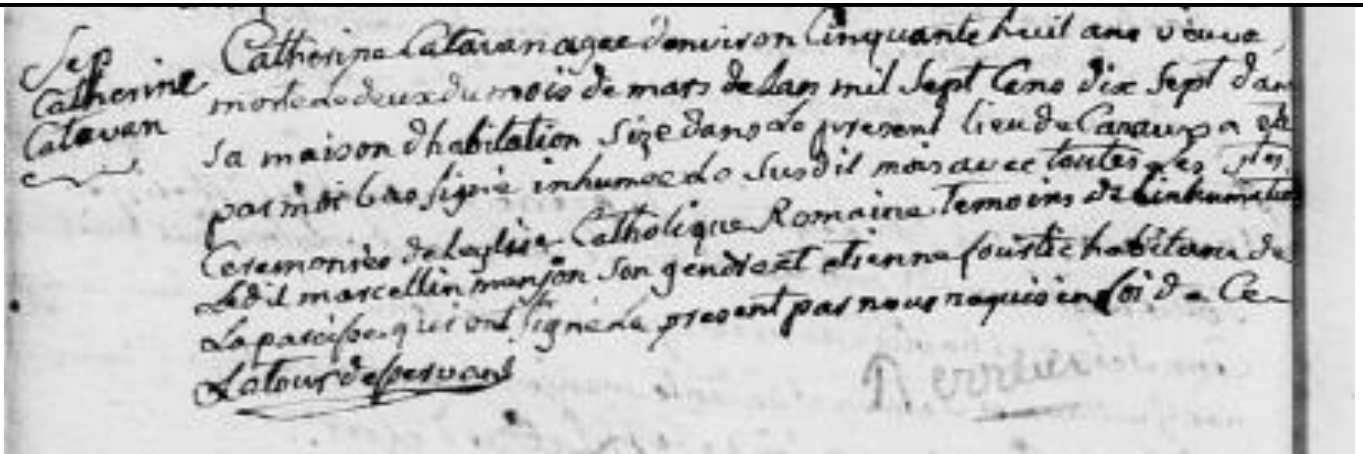 Sep
Catherine
Catavan
Catherine Catavan agee denviron Cinquante huit ans veuve
morte Le deux du mois de mars de Lan mil Sept Cens dix Sept dan
Sa maison dhabitation Size dans Le present lieu de a esté
par moi bas signé inhumee Le Susdit mois avec toutes Les
Ceremonies de Leglise Catholique Romaine Temoins de Linhumation
Ledit marcellin manjon Son gendre et etienne habitans de
La paroisse qui ont signé Le present par nous requis en foi de Ce
Latour desservant